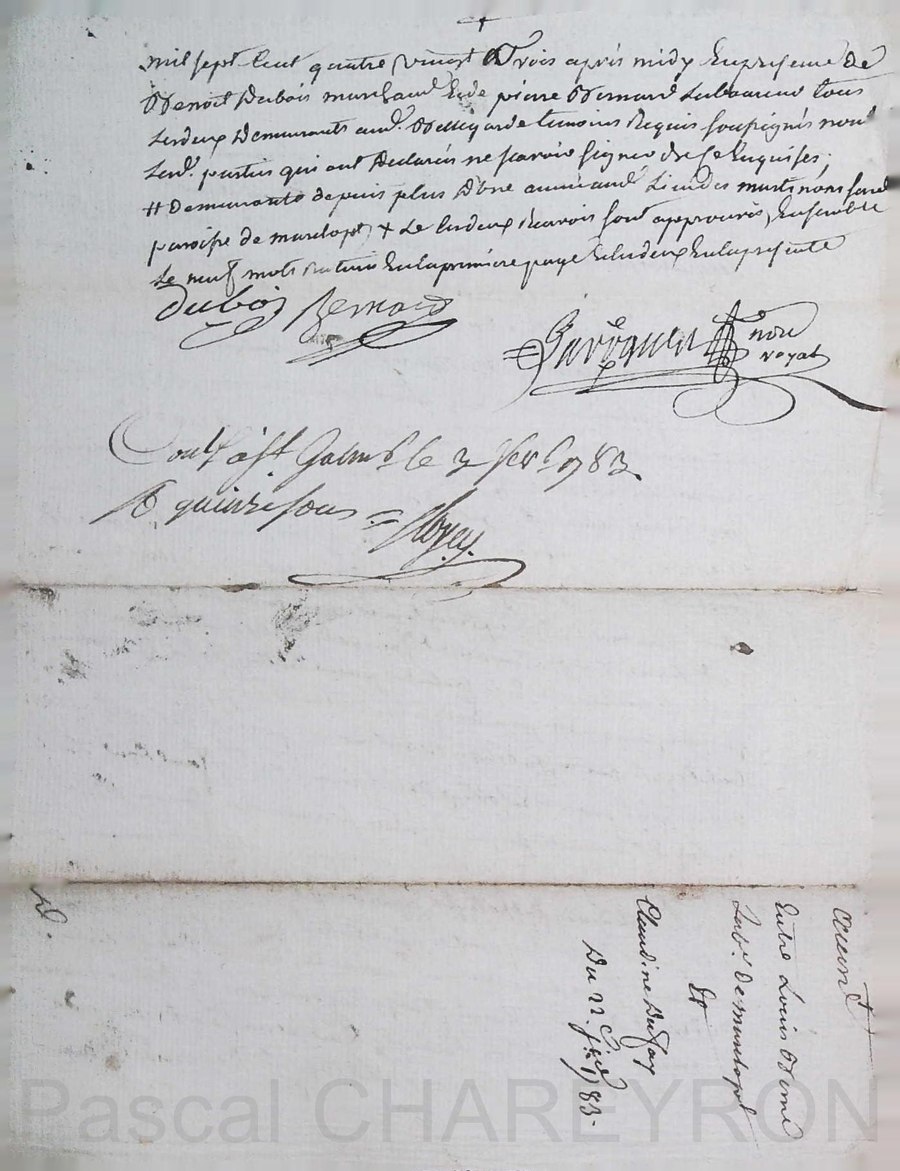 mil sept Cent quatre vingt Trois après midy En presence de
Benoit Dubois marchand Et de pierre Bernard Laboureur tous
Lesdeux Demeurants aud. Bellegarde temoins Requis soussignés non
Lesd. parties qui ont Declarés ne scavoir signer de ce Enquises;
# Demeurante depuis plus D'une année aud. Lieu des
paroisse de marclopt, + Le Lesdeux Renvois sont approuvés, Ensemble
Le neuf mots Ratures En la premiere page Et Lesdeux En la presente
Dubois Bernard
nore
royal
Contl. à St. Galmr. le 3 fevr. 1783.
R quinze sous
Couvert
Entre Louis
Labr. de marclopt
Et
Claudine Dufay
Du 22. Jer. 1783.